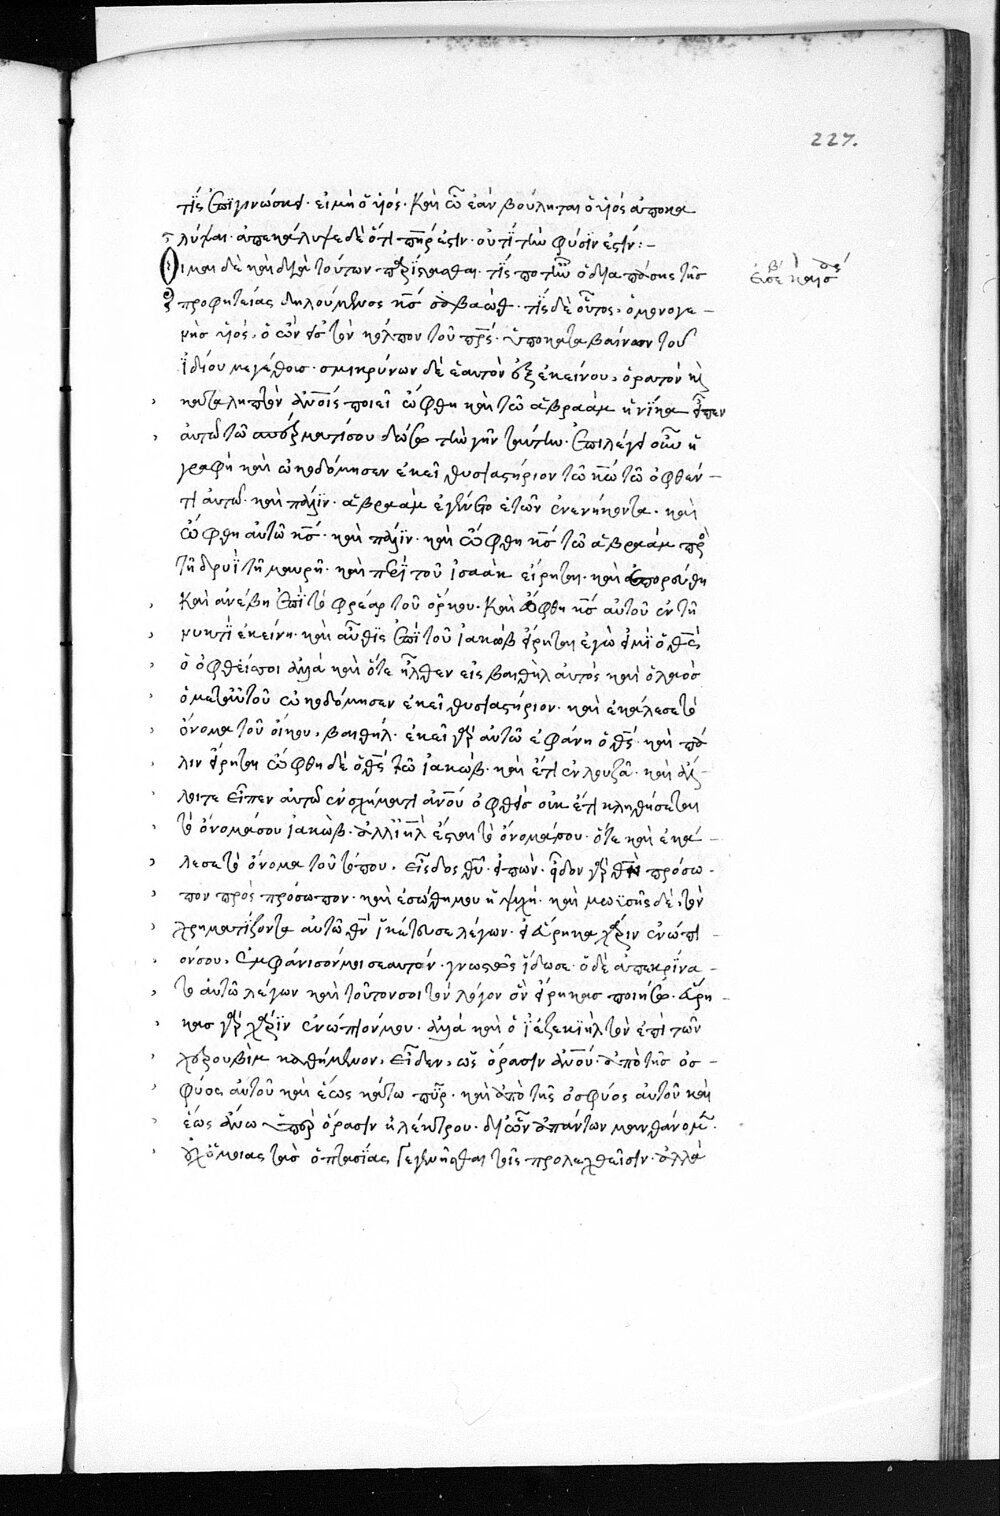 227.
τίς ἐπιγινώσκει· εἰ μὴ ὁ υἱός· καὶ ᾧ ἐὰν βούληται ὁ υἱὸς ἀποκα
λύψαι· ἀπεκάλυψε δὲ ὅτι πηρ ἐστιν· οὐ τί τὴν φύσιν ἐστίν:–
Οἶμαι δὲ καὶ διὰ τούτων παρίστασθαι· τίς ποτ' ἦν ὁ διὰ πάσης τῆς
προφητείας δηλούμενος κς σαβαώθ· τίς δὲ οὗτος, ὁ μονογε–
Εὐσε καισ
νὴς υἱός, ὁ ὢν εἰς τὸν κόλπον τοῦ πρς· ὑποκαταβαίνων τοῦ
ἰδίου μεγέθους· σμικρύνων δὲ ἑαυτὸν ἐξ ἐκείνου, ὁρατὸν κ
καταληπτὸν ἀνοις ποιεῖ ὤφθη καὶ τῷ ἀβραὰμ ἡνίκα εἶπεν
αὐτῷ τῷ σπέρματί σου δώσω τὴν γῆν ταύτην· ἐπιλέγει οὖν ἡ
γραφὴ καὶ ὠκοδόμησεν ἐκεῖ θυσιαστήριον τῷ κω τῷ ὀφθέν–
τι αὐτῷ· καὶ πάλιν· ἀβραὰμ ἐγένετο ἐτῶν ἐνενήκοντα· καὶ
ὤφθη αὐτῷ κς· καὶ πάλιν· καὶ ὤφθη κς τῷ ἀβραὰμ πρὸ
τῇ δρυῒ τῇ μαυρῆ· καὶ περὶ τοῦ ἰσαὰκ εἴρηται· καὶ ἐπορεύθη
καὶ ἀνέβη ἐπὶ τὸ φρέαρ τοῦ ὅρκου· καὶ ὤφθη κς αὐτοῦ ἐν τῇ
νυκτὶ ἐκείνη· καὶ αὖθις ἐπὶ τοῦ ἰακὼβ εἴρηται ἐγώ εἰμι ὁ θς
ὁ ὀφθείς σοι ἀλλὰ καὶ ὅτε ἦλθεν εἰς βαιθὴλ αὐτὸς καὶ ὁ λαὸς
ὁ μετ' αὐτοῦ ὠκοδόμησεν ἐκεῖ θυσιαστήριον· καὶ ἐκάλεσε τὸ
ὄνομα τοῦ οἴκου, βαιθήλ· ἐκεῖ γὰρ αὐτῷ ἐφάνη ὁ θς· καὶ πά
λιν εἴρηται ὤφθη δὲ ὁ θς τῷ ἰακὼβ· καὶ ἔτι ἐν λουζᾶ· καὶ
εἶπεν αὐτῷ ἐν σχήματι ἀνου ὀφθεὶς οὐκ ἔτι κληθήσεται
τὸ ὄνομά σου ἰακώβ· ἀλλ' ιηλ ἔσται τὸ ὄνομά σου· ὅτε καὶ ἐκά–
λεσε τὸ ὄνομα τοῦ τόπου, εἶδος θυ· εἰπών· εἶδον γὰρ θν πρόσω–
πον πρὸς πρόσωπον· καὶ ἐσώθη μου ἡ ψυχή· καὶ μωϋσῆς δὲ, τὸν
χρηματίζοντα αὐτῷ θν ἱκέτευσε λέγων· εἰ εὕρηκα χάριν ἐνώπι–
όν σου, ἐμφάνισόν μοι σεαυτόν· γνωστῶς ἴδω σε· ὁ δὲ ἀπεκρίνα–
το αὐτῷ λέγων καὶ τοῦτόν σοι τὸν λόγον ὃν εἴρηκας ποιήσω· εὕρη–
κας γὰρ χάριν ἐνώπιόν μου· ἀλλὰ καὶ ὁ ἰεζεκιὴλ τὸν ἐπὶ τῶν
χερουβὶμ καθήμενον, εἶδεν, ὡς ὅρασιν ἀνου· ἀπὸ τῆς ὀσ–
φύος αὐτοῦ καὶ ἕως κάτω πῦρ· καὶ ἀπὸ τῆς ὀσφύος αὐτοῦ καὶ
ἕως ἄνω ὅρασιν ἠλέκτρου· δι' ὧν ἁπάντων μανθάνομεν·
οὐχ ὁμοίας τὰς ὀπτασίας γεγενῆσθαι τοῖς προλεχθεῖσιν· ἀλλὰ